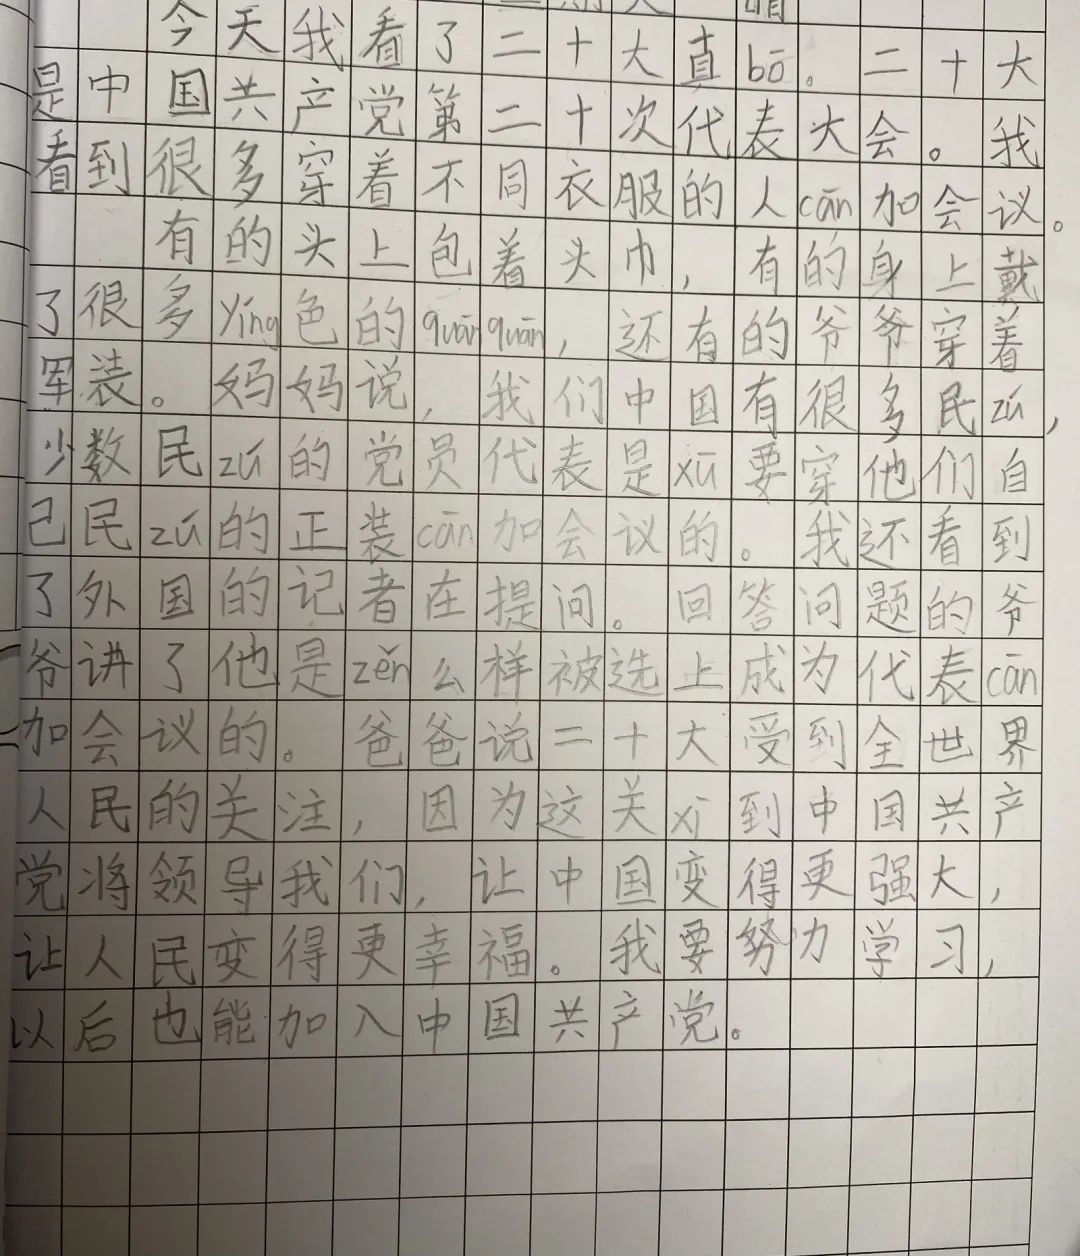 今天我看了二十大真bō。二十大
是中国共产党第二十次代表大会。我
看到很多穿着不同衣服的人cān加会议。
有的头上包着头巾，有的身上戴
了很多yíng色的quānquān，还有的爷爷穿着
军装。妈妈说，我们中国有很多民zú，
少数民zú的党员代表是xū要穿他们自
己民zú的正装cān加会议的。我还看到
了外国的记者在提问。回答问题的爷
爷讲了他是zěn么样被选上成为代表cān
加会议的。爸爸说二十大受到全世界
人民的关注，因为这关xì到中国共产
党将领导我们，让中国变得更强大，
让人民变得更幸福。我要努力学习，
以后也能加入中国共产党。